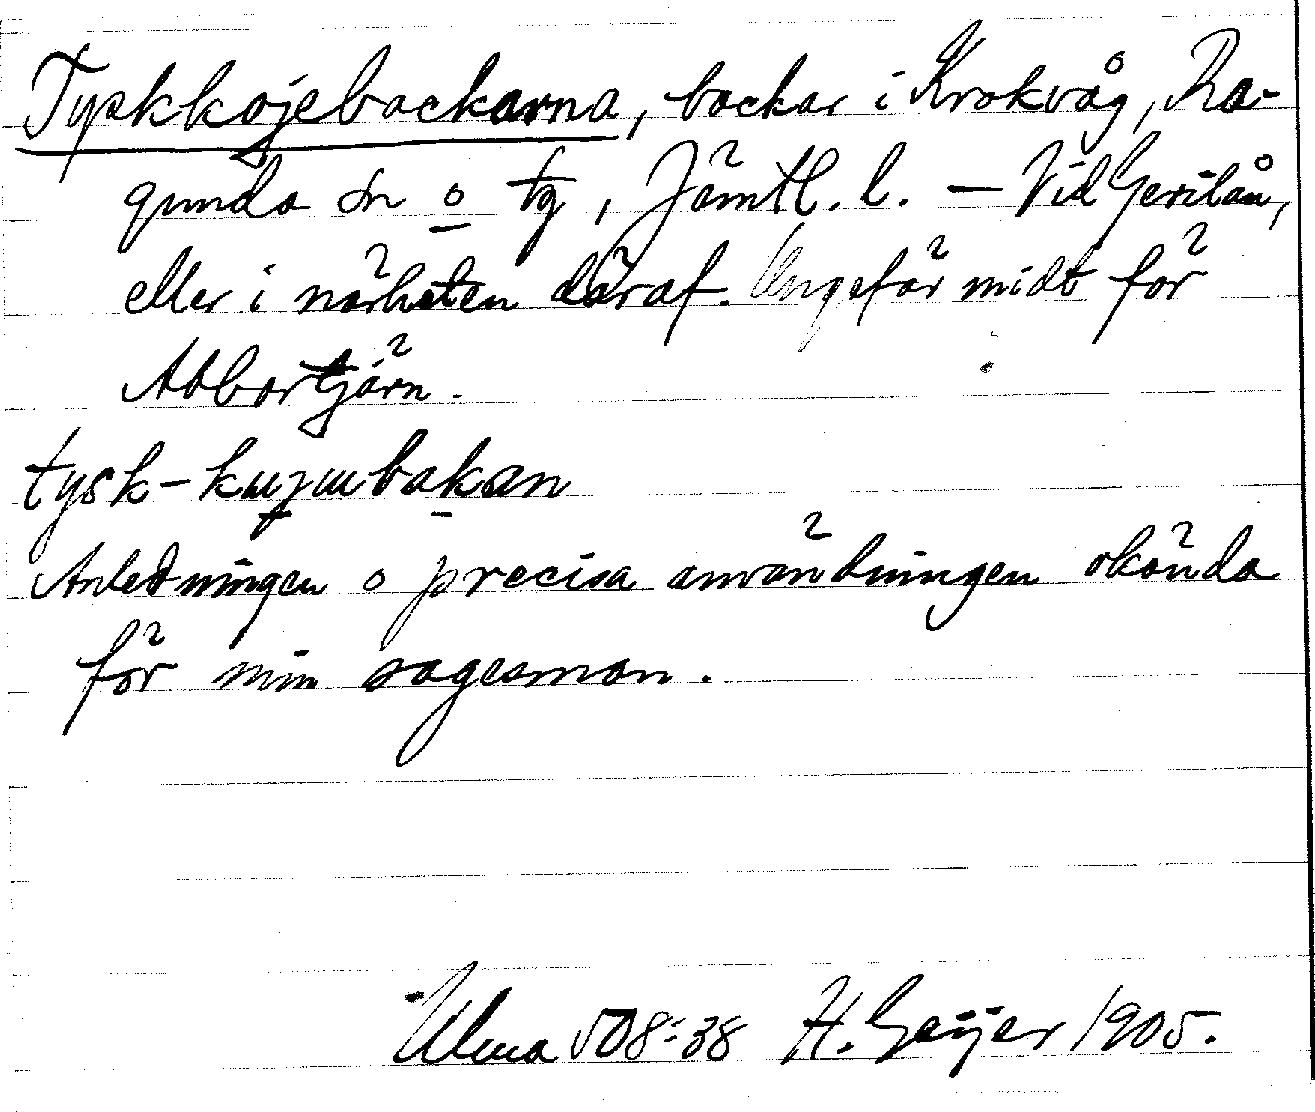 Tyskkojebackarna, backar i Krokvåg, Ra-
gunda sn o tg, Jämtl. l. — Vid Gerilån,
eller i närheten däraf. Ungefär midt för
Abbortjärn.
tysk-kujubakan
Anledningen o precisa användningen okända
för min sagesman.
Ulma 508:38 H. Geijer 1905.